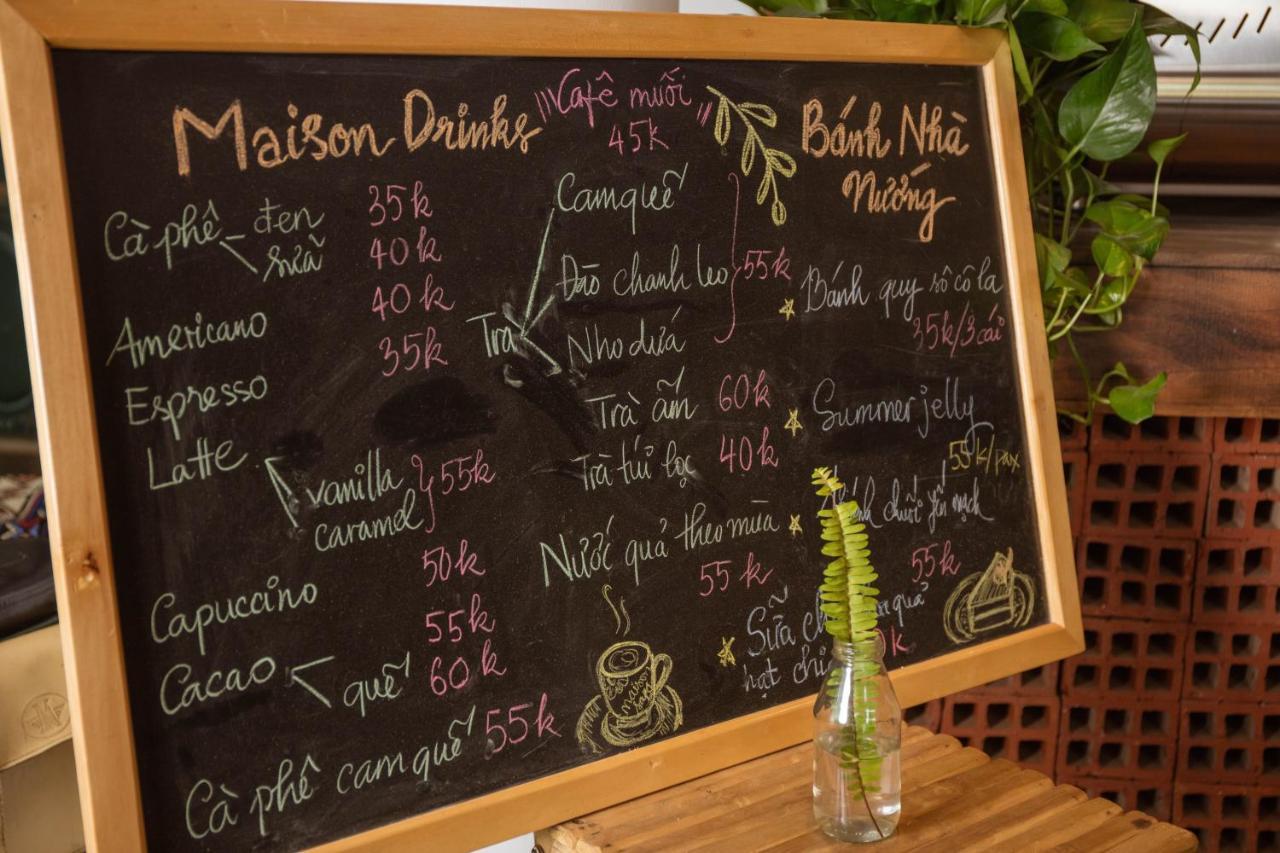 Maison Drinks
Cà phê đen 35k
sữa 40k
Americano 40k
Espresso 35k
Latte
vanilla
caramel 55k
Capuccino 50k
Cacao 55k
quế 60k
Cà phê cam quế 55k
"Cafê muối"
45k
Trà
Cam quế
Đào chanh leo 55k
Nho dứa
Trà ấm 60k
Trà túi lọc 40k
Nước quả theo mùa
55k
maison
Bánh Nhà
Nướng
Bánh quy sôcôla
35k/3 cái
Summer jelly
55k/pax
chuối yến mạch
55k
Sữa quả
hạt
k